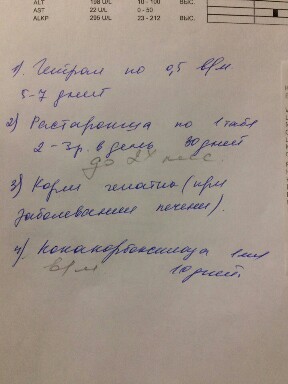 ALT 198 U/L 10 - 100 ВЫС.
AST 22 U/L 0 - 50
ALKP 295 U/L 23 - 212 ВЫС.
1) Гептрал по 0,5 в/м
5-7 дней
2) Расторопша по 1 табл
2-3 р. в день 30 дней
до 2х мес.
3) Корм гепатик (при
заболевании печени).
4) Кокарбоксилаза 1 мл
в/м 10 дней.